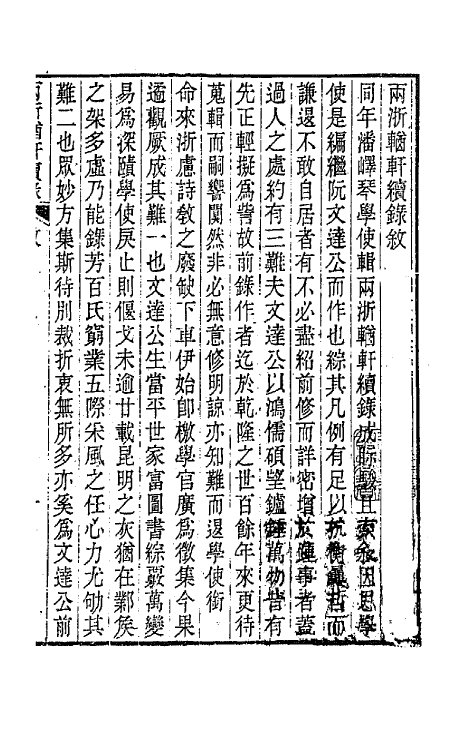 兩浙輶軒續錄敘
同年潘嶧琴學使輯兩浙輶軒續錄成貽書且索永因思學
使是編繼阮文達公而作也綜其凡例有足以抗衡曩哲而
謙退不敢自居者有不必盡紹前修而詳密增於便事者蓋
過人之處約有三難夫文達公以鴻儒碩望鑪錘萬物皆有
先正輕擬為訾故前錄作者迄於乾隆之世百餘年來更待
蒐輯而嗣響闃然非必無意修明諒亦知難而退學使銜
命來浙慮詩敎之廢缺下車伊始卽檄學官廣為徵集今果
遹觀厥成其難一也文達公生當平世家富圖書綜覈萬變
易為深賾學使戾止則偃戈未逾廿載昆明之灰猶在鄴矦
之架多虛乃能錄芳百氏窮業五際釆風之任心力尤劬其
難二也眾妙方集斯待別裁折衷無所多亦奚為文達公前
兩浙輶軒續錄 敘